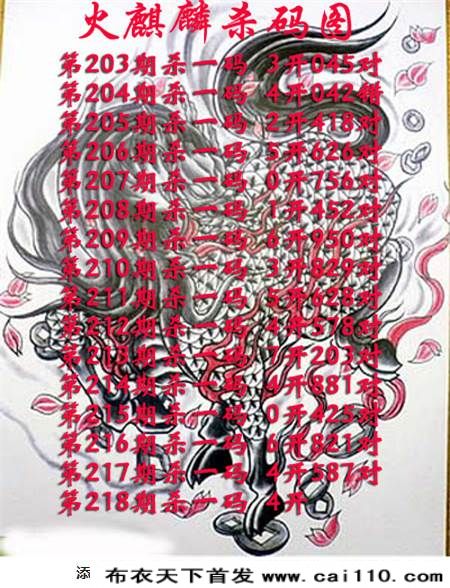 火麒麟杀码图
第203期杀一码 3开045对
第204期杀一码 4开042错
第205期杀一码 2开418对
第206期杀一码 5开626对
第207期杀一码 0开756对
第208期杀一码 1开452对
第209期杀一码 6开950对
第210期杀一码 3开829对
第211期杀一码 5开628对
第212期杀一码 4开578对
第213期杀一码 7开203对
第214期杀一码 4开881对
第215期杀一码 0开425对
第216期杀一码 6开821对
第217期杀一码 4开587对
第218期杀一码 4开
添 布衣天下首发 www.cai110.com